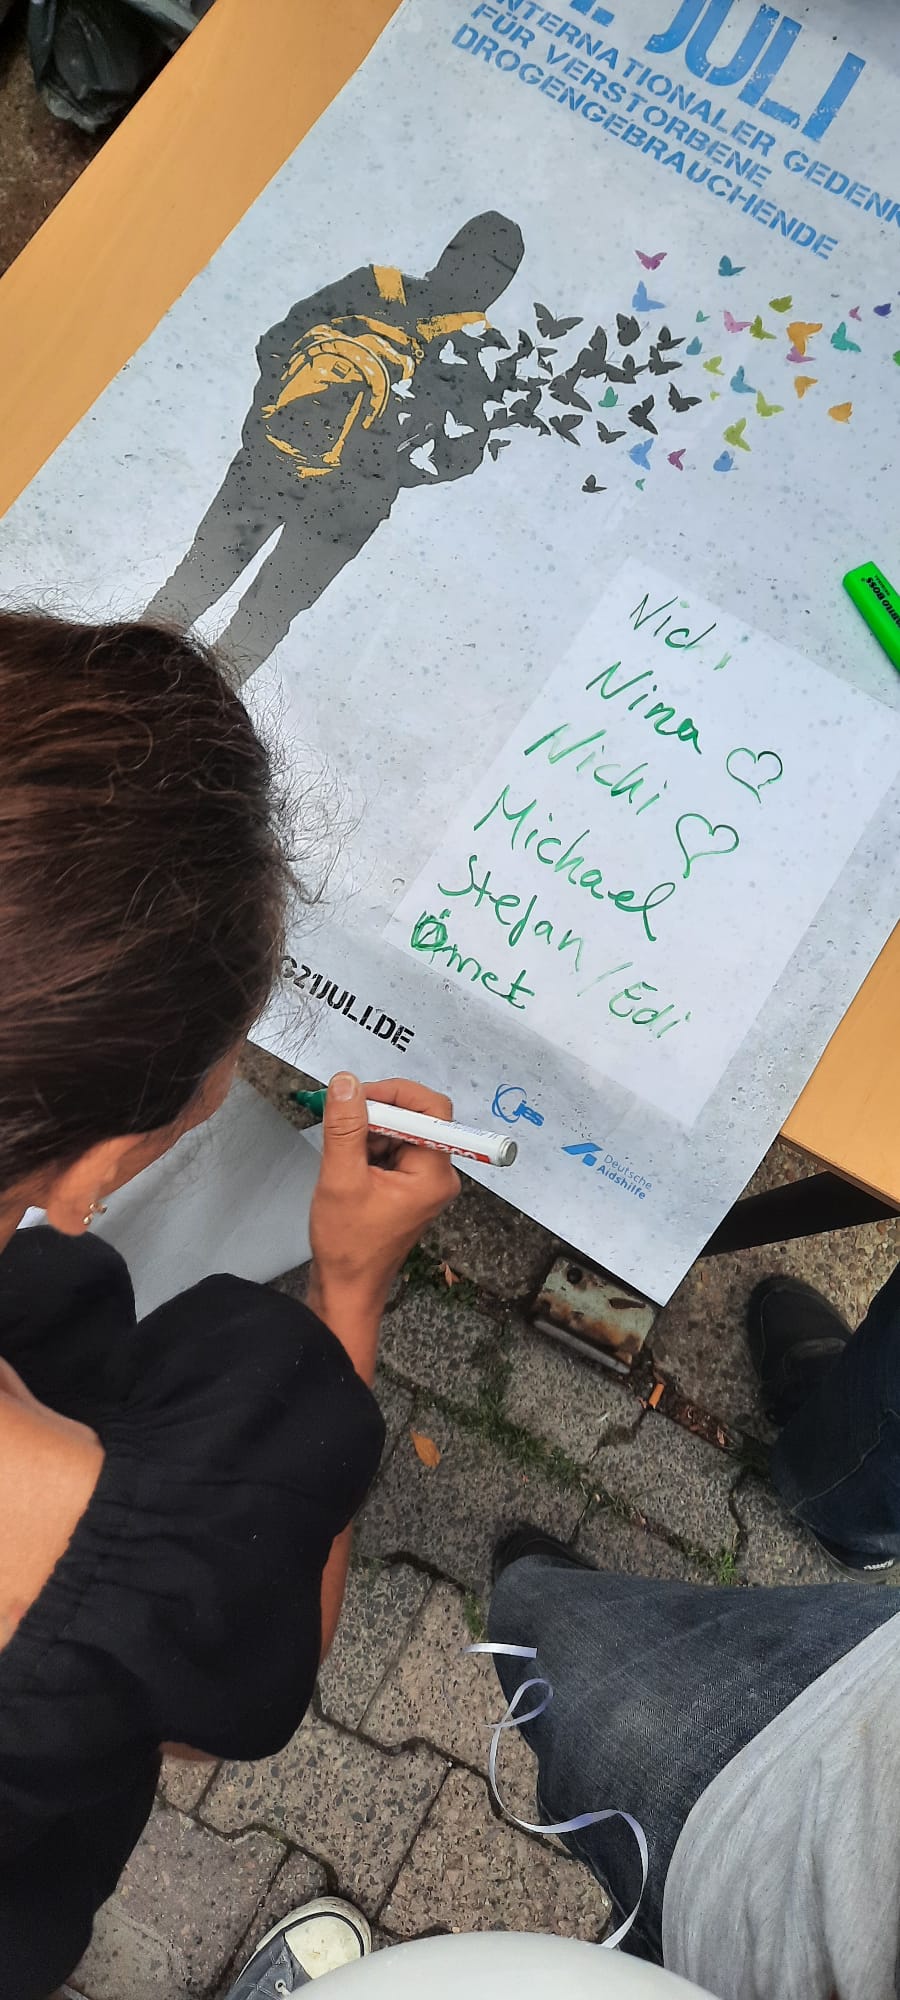 . JULI
INTERNATIONALER GEDENK
FÜR VERSTORBENE
DROGENGEBRAUCHENDE
BOSS
Nichi
Nina ♡
Nichi ♡
Michael
Stefan / Edi
Ömet
21JULI.DE
jes
Deutsche
Aidshilfe